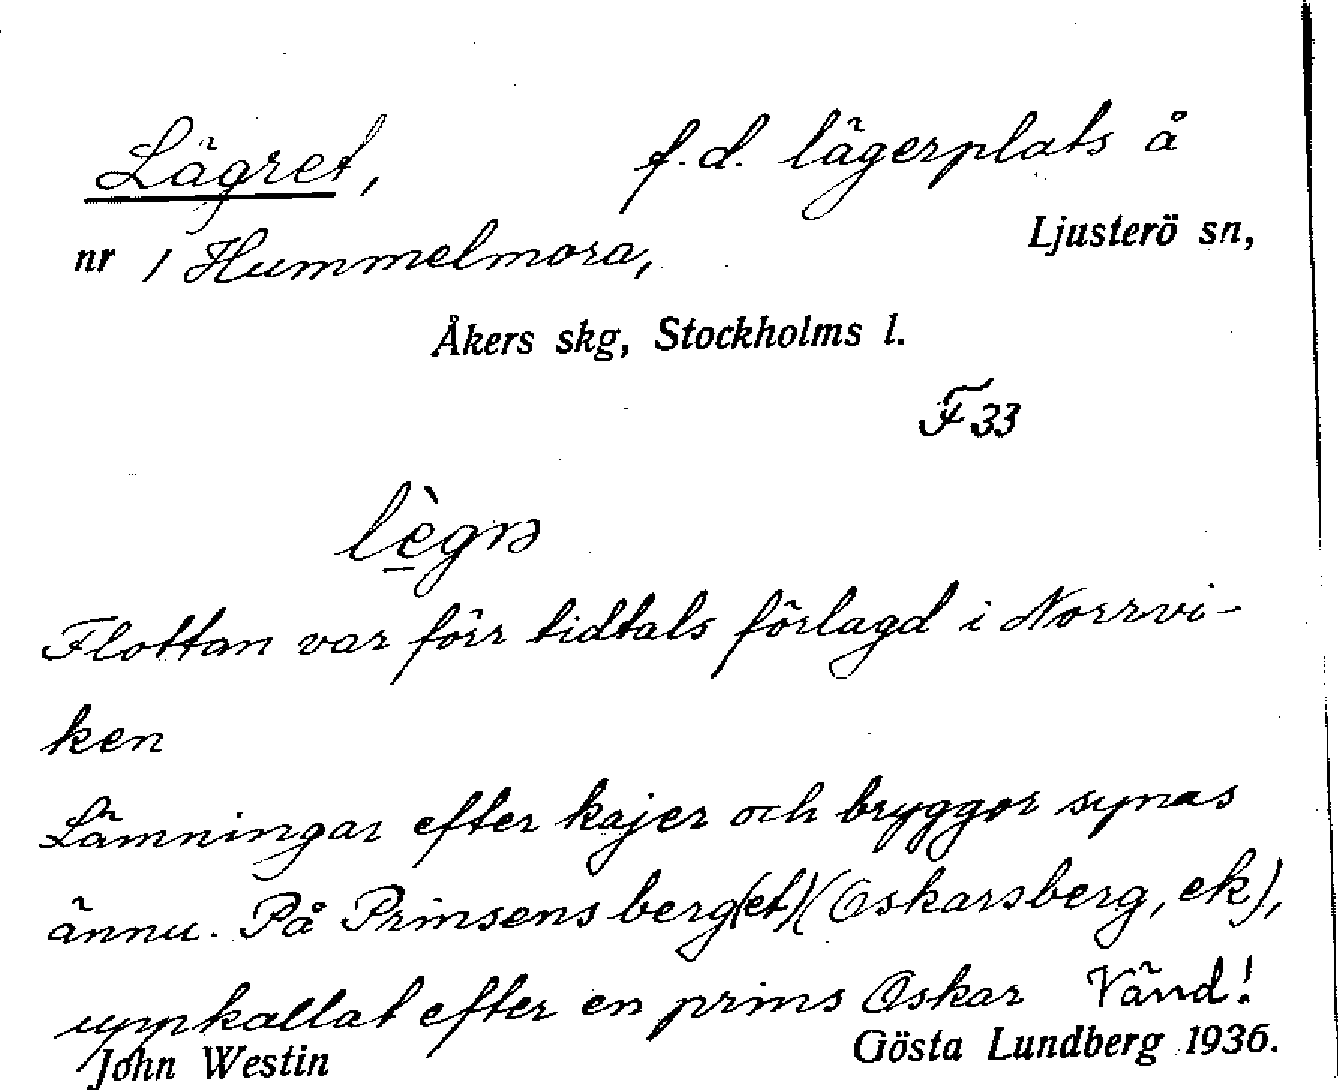 Lägret, f.d. lägerplats å
nr 1 Hummelmora, Ljusterö sn,
Åkers skg, Stockholms l.
F 33
lègrə
Flottan var förr tidtals förlagd i Norrvi-
ken
Lämningar efter kajer och bryggor synas
ännu. På Prinsens berg(et) (Oskarsberg, ek),
uppkallat efter en prins Oskar Vänd!
John Westin Gösta Lundberg 1936.